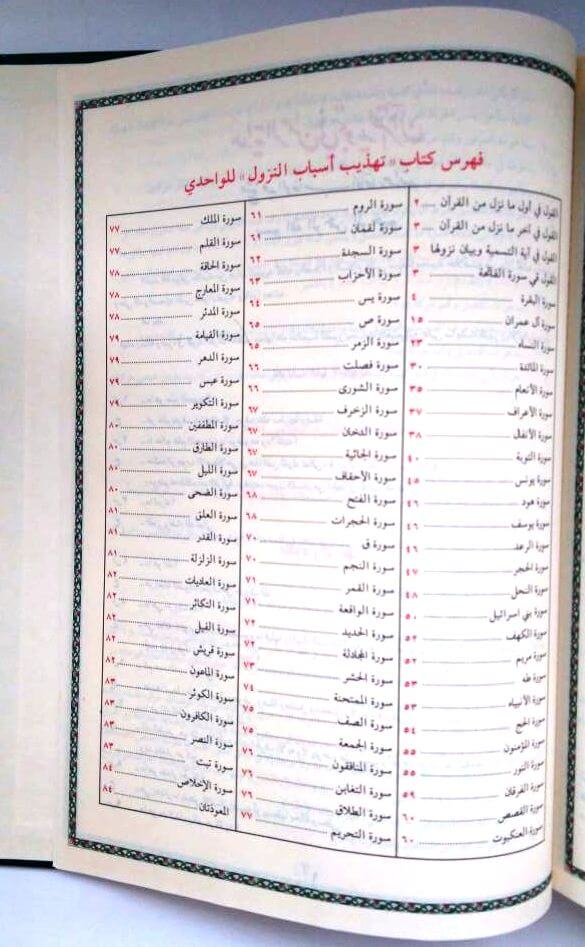 فهرس كتاب « تهذيب أسباب النزول » للواحدي
القول في أول ما نزل من القرآن ٢
القول في آخر ما نزل من القرآن ٣
القول في آية التسمية وبيان نزولها ٣
القول في سورة الفاتحة ٣
سورة البقرة ٤
سورة آل عمران ١٥
سورة النساء ٢٣
سورة المائدة ٣٠
سورة الأنعام ٣٥
سورة الأعراف ٣٧
سورة الأنفال ٣٨
سورة التوبة ٤٠
سورة يونس ٤٥
سورة هود ٤٦
سورة يوسف ٤٦
سورة الرعد ٤٦
سورة الحجر ٤٧
سورة النحل ٤٨
سورة بني اسرائيل ٥٠
سورة الكهف ٥٢
سورة مريم ٥٢
سورة طه ٥٣
سورة الأنبياء ٥٣
سورة الحج ٥٤
سورة المؤمنون ٥٥
سورة النور ٥٥
سورة الفرقان ٥٩
سورة القصص ٦٠
سورة العنكبوت ٦٠
سورة الروم ٦١
سورة لقمان ٦١
سورة السجدة ٦٢
سورة الأحزاب ٦٣
سورة يس ٦٤
سورة ص ٦٥
سورة الزمر ٦٥
سورة فصلت ٦٦
سورة الشورى ٦٦
سورة الزخرف ٦٧
سورة الدخان ٦٧
سورة الجاثية ٦٧
سورة الأحقاف ٦٧
سورة الفتح ٦٨
سورة الحجرات ٦٨
سورة ق ٧٠
سورة النجم ٧٠
سورة القمر ٧١
سورة الواقعة ٧١
سورة الحديد ٧٢
سورة المجادلة ٧٢
سورة الحشر ٧٣
سورة الممتحنة ٧٤
سورة الصف ٧٥
سورة الجمعة ٧٥
سورة المنافقون ٧٦
سورة التغابن ٧٦
سورة الطلاق ٧٦
سورة التحريم ٧٧
سورة الملك ٧٧
سورة القلم ٧٧
سورة الحاقة ٧٨
سورة المعارج ٧٨
سورة المدثر ٧٨
سورة القيامة ٧٩
سورة الدهر ٧٩
سورة عبس ٧٩
سورة التكوير ٧٩
سورة المطففين ٨٠
سورة الطارق ٨٠
سورة الليل ٨٠
سورة الضحى ٨٠
سورة العلق ٨١
سورة القدر ٨١
سورة الزلزلة ٨١
سورة العاديات ٨٢
سورة التكاثر ٨٢
سورة الفيل ٨٢
سورة قريش ٨٢
سورة الماعون ٨٢
سورة الكوثر ٨٣
سورة الكافرون ٨٣
سورة النصر ٨٣
سورة تبت ٨٣
سورة الإخلاص ٨٤
المعوذتان ٨٤